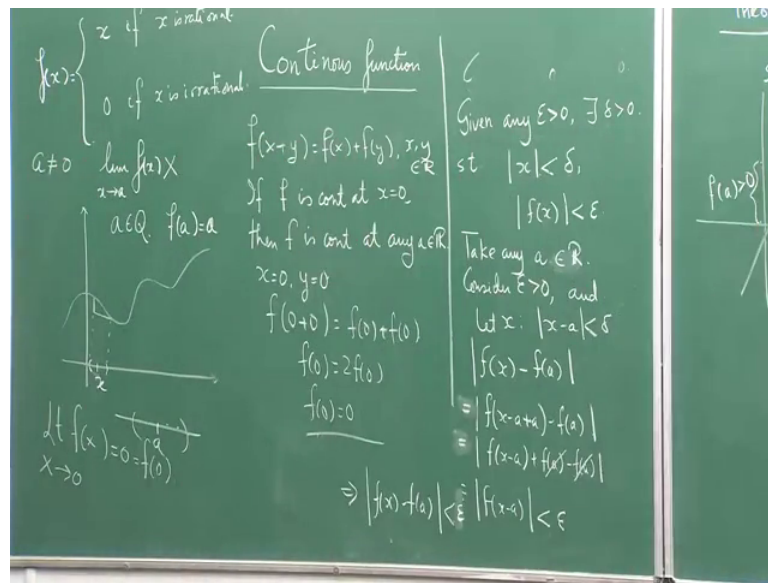 f(x)= { x if x is rational.
0 if x is irrational.
a≠0 lim f(x) X
x→a
a∈Q. f(a)=a
x
Lt f(x)=0=f(0)
x→0
a
Continous function
f(x+y)=f(x)+f(y), x,y ∈ℝ
If f is cont at x=0,
then f is cont at any a∈ℝ
x=0, y=0
f(0+0)=f(0)+f(0)
f(0)=2f(0)
f(0)=0
Given any ε>0, ∃ δ>0.
st |x|<δ,
|f(x)|<ε.
Take any a∈ℝ.
Consider ε>0, and
let x: |x-a|<δ
|f(x)-f(a)|
=|f(x-a+a)-f(a)|
=|f(x-a)+f(a)-f(a)|
⇒ |f(x)-f(a)|<ε = |f(x-a)|<ε
f(a)>0